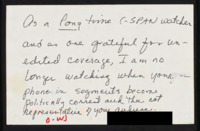 As a long-time C-SPAN watcher
and as one grateful for un-
edited coverage, I am no
longer watching when your
phone in segments become
"politically correct" and thus not
representative of your audience.
O.W.